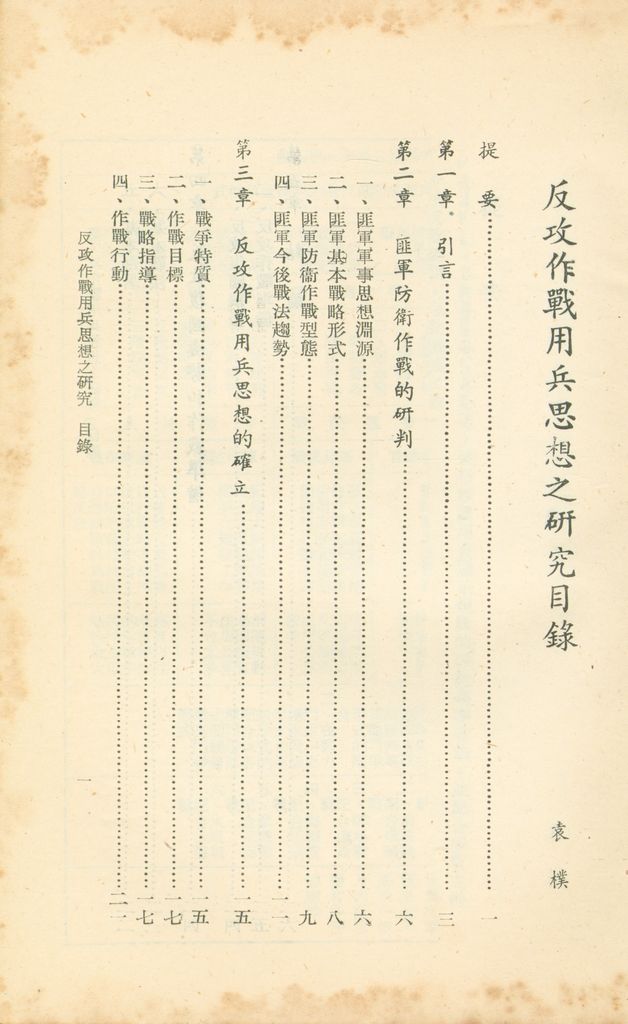 反攻作戰用兵思想之研究目錄
袁樸
提要……一
第一章 引言……三
第二章 匪軍防衛作戰的研判……六
一、匪軍軍事思想淵源……六
二、匪軍基本戰略形式……八
三、匪軍防衛作戰型態……九
四、匪軍今後戰法趨勢……一一
第三章 反攻作戰用兵思想的確立……一五
一、戰爭特質……一五
二、作戰目標……一七
三、戰略指導……一七
四、作戰行動……二一
反攻作戰用兵思想之研究 目錄
一